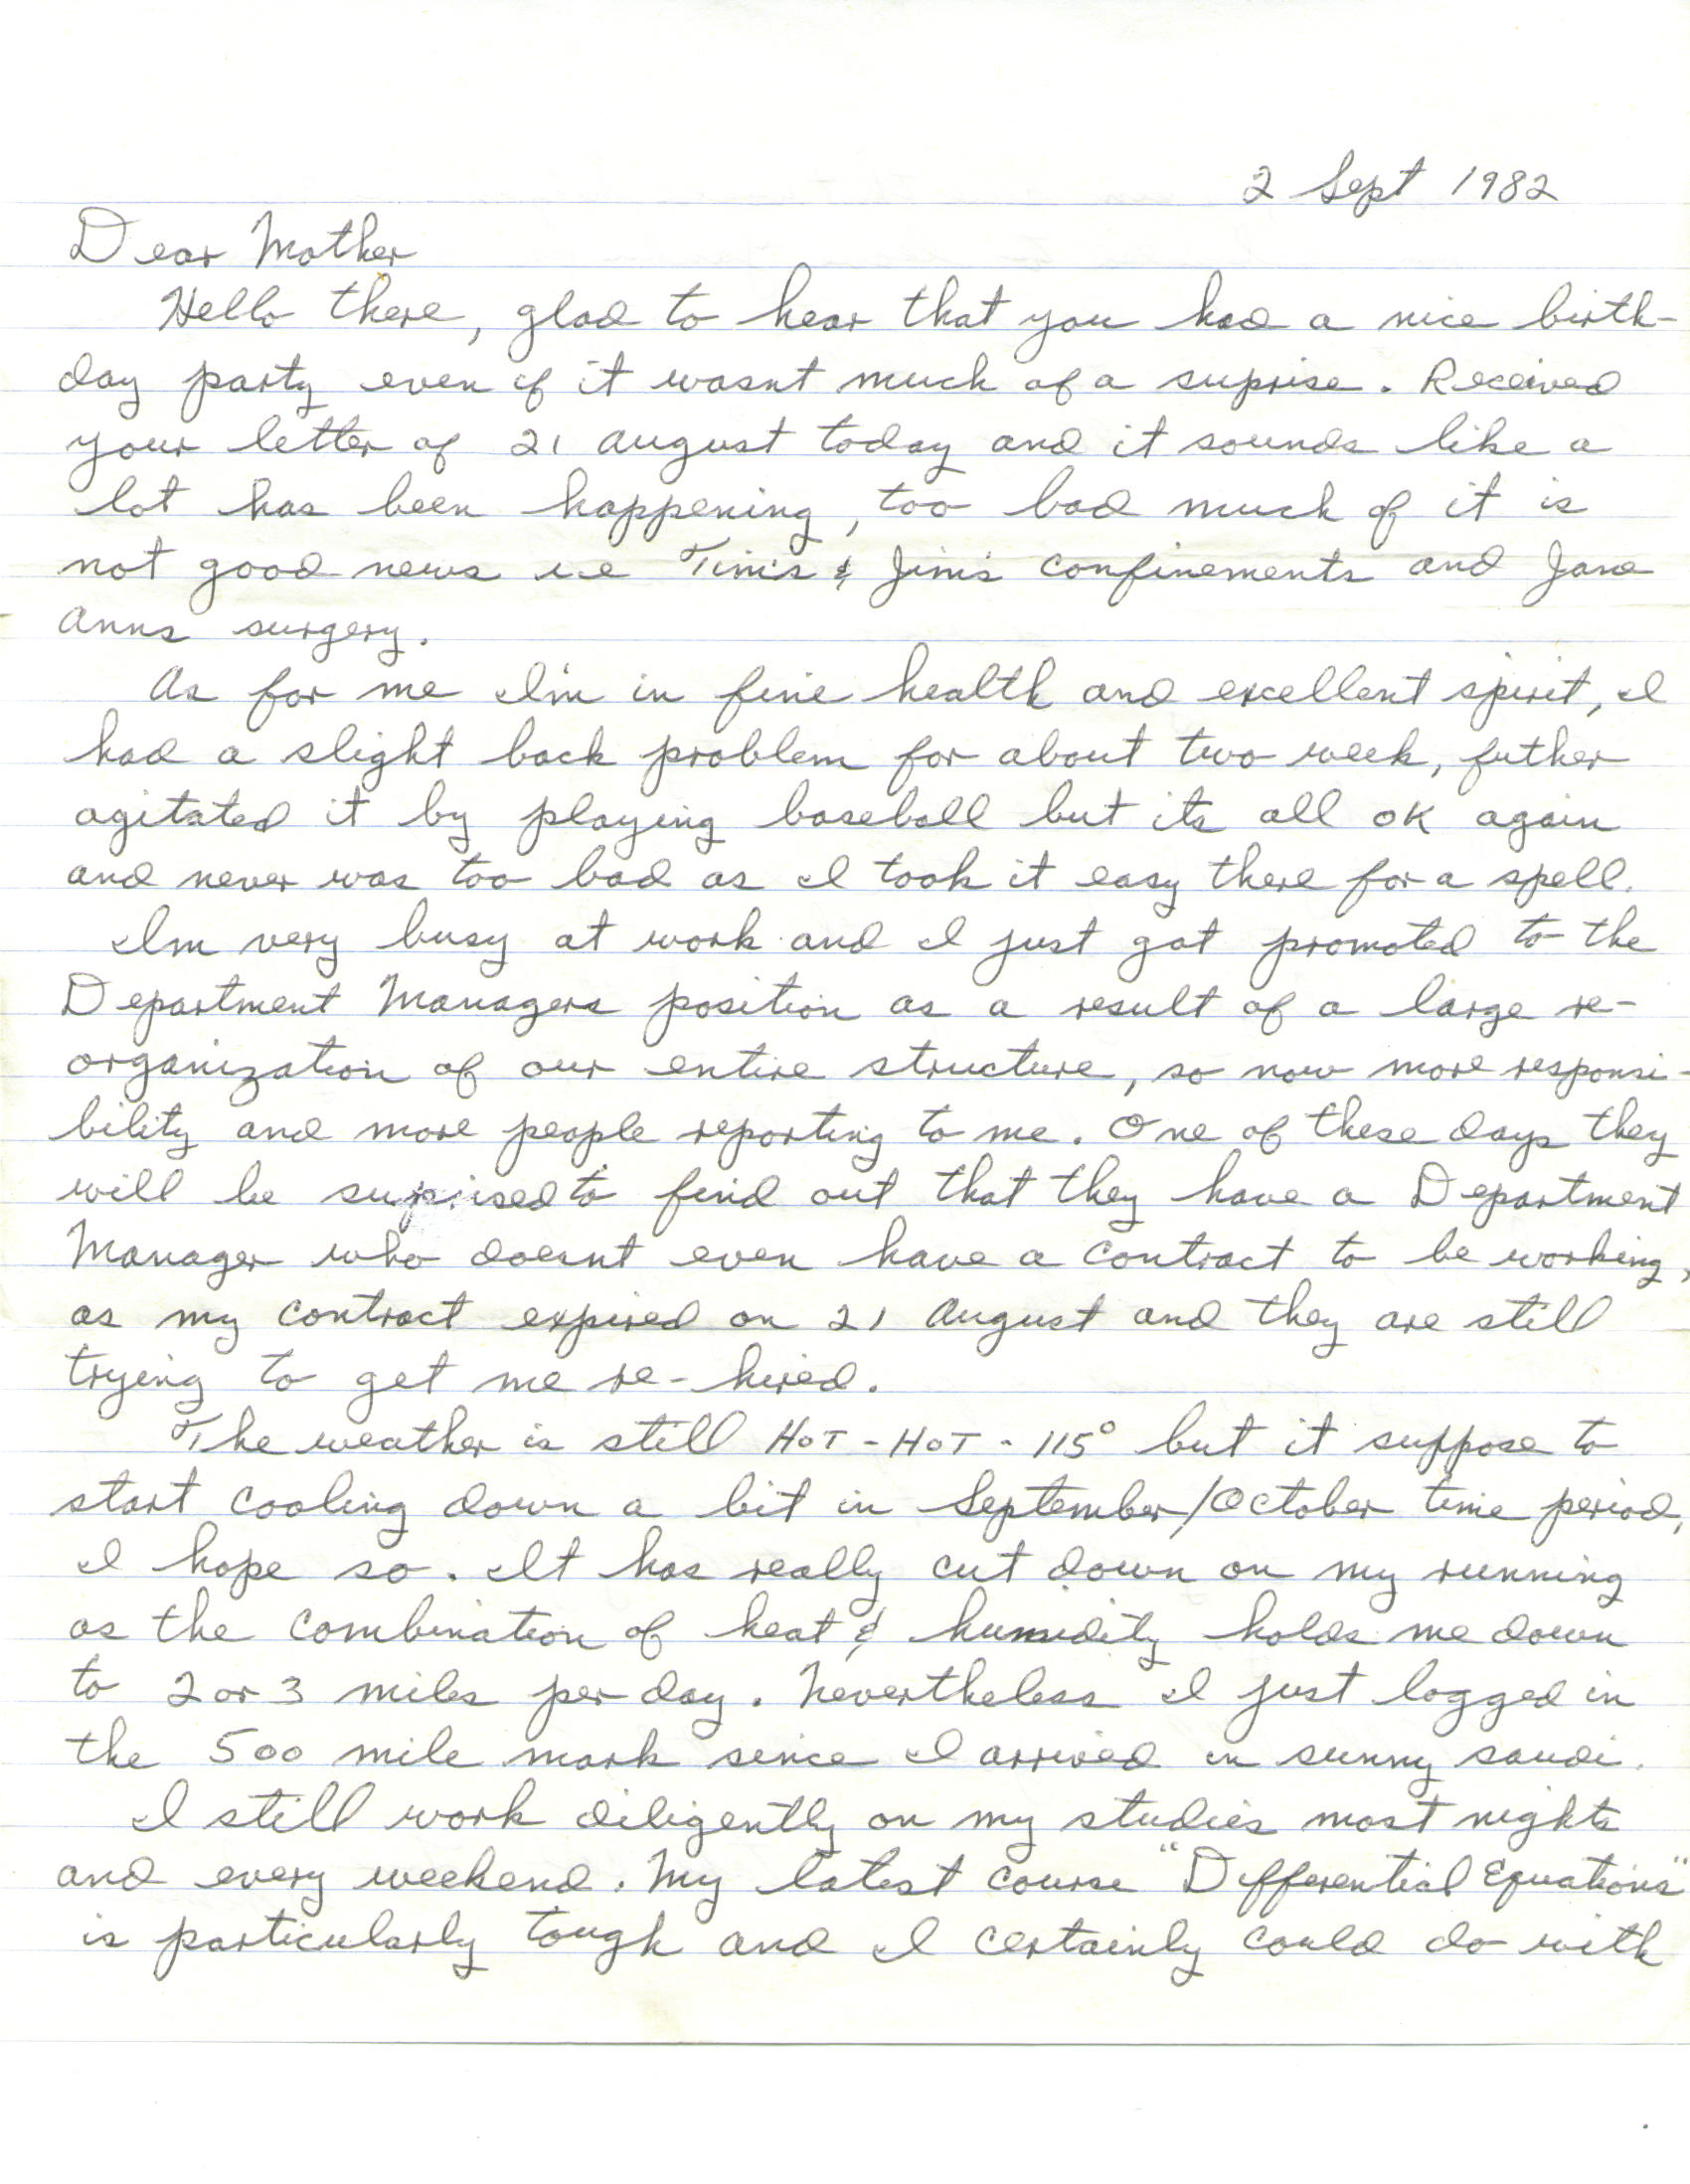 2 Sept 1982
Dear Mother
Hello there, glad to hear that you had a nice birth-
day party even if it wasnt much of a suprise. Received
your letter of 21 August today and it sounds like a
lot has been happening, too bad much of it is
not good news i.e Tim's & Jim's confinements and Jane
Anns surgery.
As for me I'm in fine health and excellent spirit, I
had a slight back problem for about two week, futher
agitated it by playing baseball but its all OK again
and never was too bad as I took it easy there for a spell.
Im very busy at work and I just got promoted to the
Department Managers position as a result of a large re-
organization of our entire structure, so now more responsi-
bility and more people reporting to me. One of these days they
will be suprised to find out that they have a Department
Manager who doesnt even have a contract to be working,
as my contract expired on 21 August and they are still
trying to get me re-hired.
The weather is still HOT - HOT - 115° but it suppose to
start cooling down a bit in September/October time period,
I hope so. It has really cut down on my running
as the combination of heat & humidity holds me down
to 2 or 3 miles per day. Nevertheless I just logged in
the 500 mile mark since I arrived in sunny saudi.
I still work diligently on my studies most nights
and every weekend. My latest course "Differential Equations"
is particularly tough and I certainly could do with